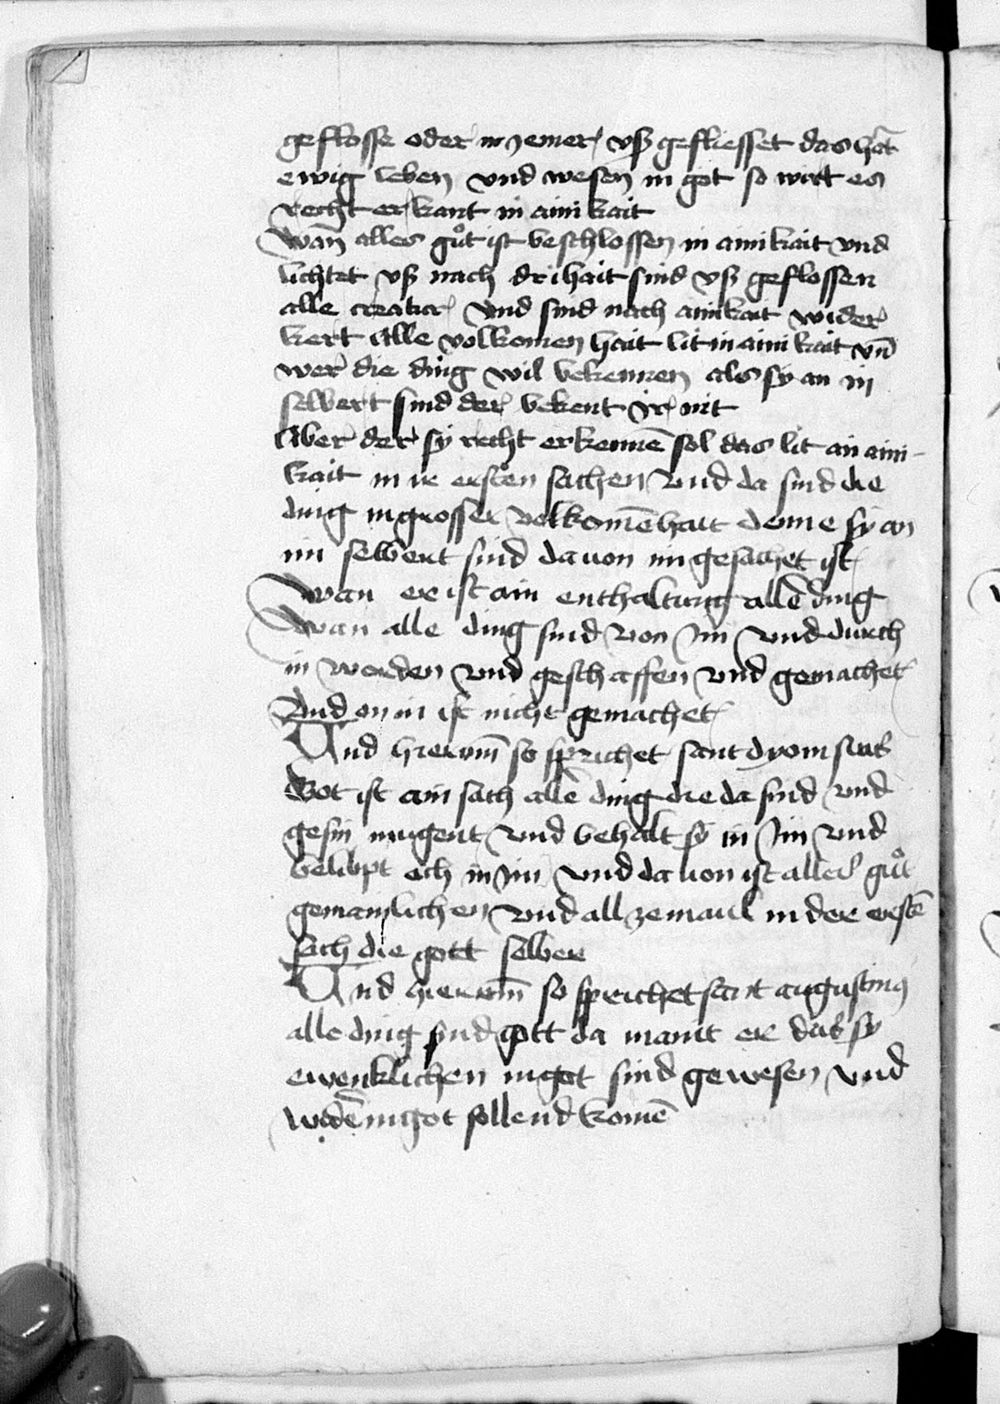 geflosse oder in yemer vß gefliesset das hat
ewig leben vnd wesen in got so wirt es
recht erkant in ainikait
Wan̄ alles gůt ist beschlossen in ainikait vnd
lichtet vß nach drihait sind vß geflossen
alle creatur vnd sind nach ainikait wider
kert Alle volkomen hait lit in aini kait vn̄
wer die ding wil bekennen als sy an in
selbert sind der bekent ir nit
Aber der sy recht erkennē sol das lit an aini-
kait in ir ersten sachen vnd da sind die
ding in grosser volkomēhait denne sy an
in selbert sind da von in gesachet ist
Wan er ist ain enthaltung allē ding
Wan alle ding sind von Im vnd durch
in worden vnd geschaffen vnd gemachet
Vnd on in ist nicht gemachet
Vnd hierum̄ so sprichet sant dyonisius
Got ist ain sach allē ding die da sind vnd
gesin mugent vnd behalt sy in Im vnd
belibpt och in Im vnd da von ist alles gůt
gemainlichen vnd all zemaul in der erstē
sach die gott selber
Vnd hierum̄ so sprichet sant augustinus
alle ding sind gott da maint er das sy
ewenklichen in got sind gewesen vnd
widē in got sollend komē